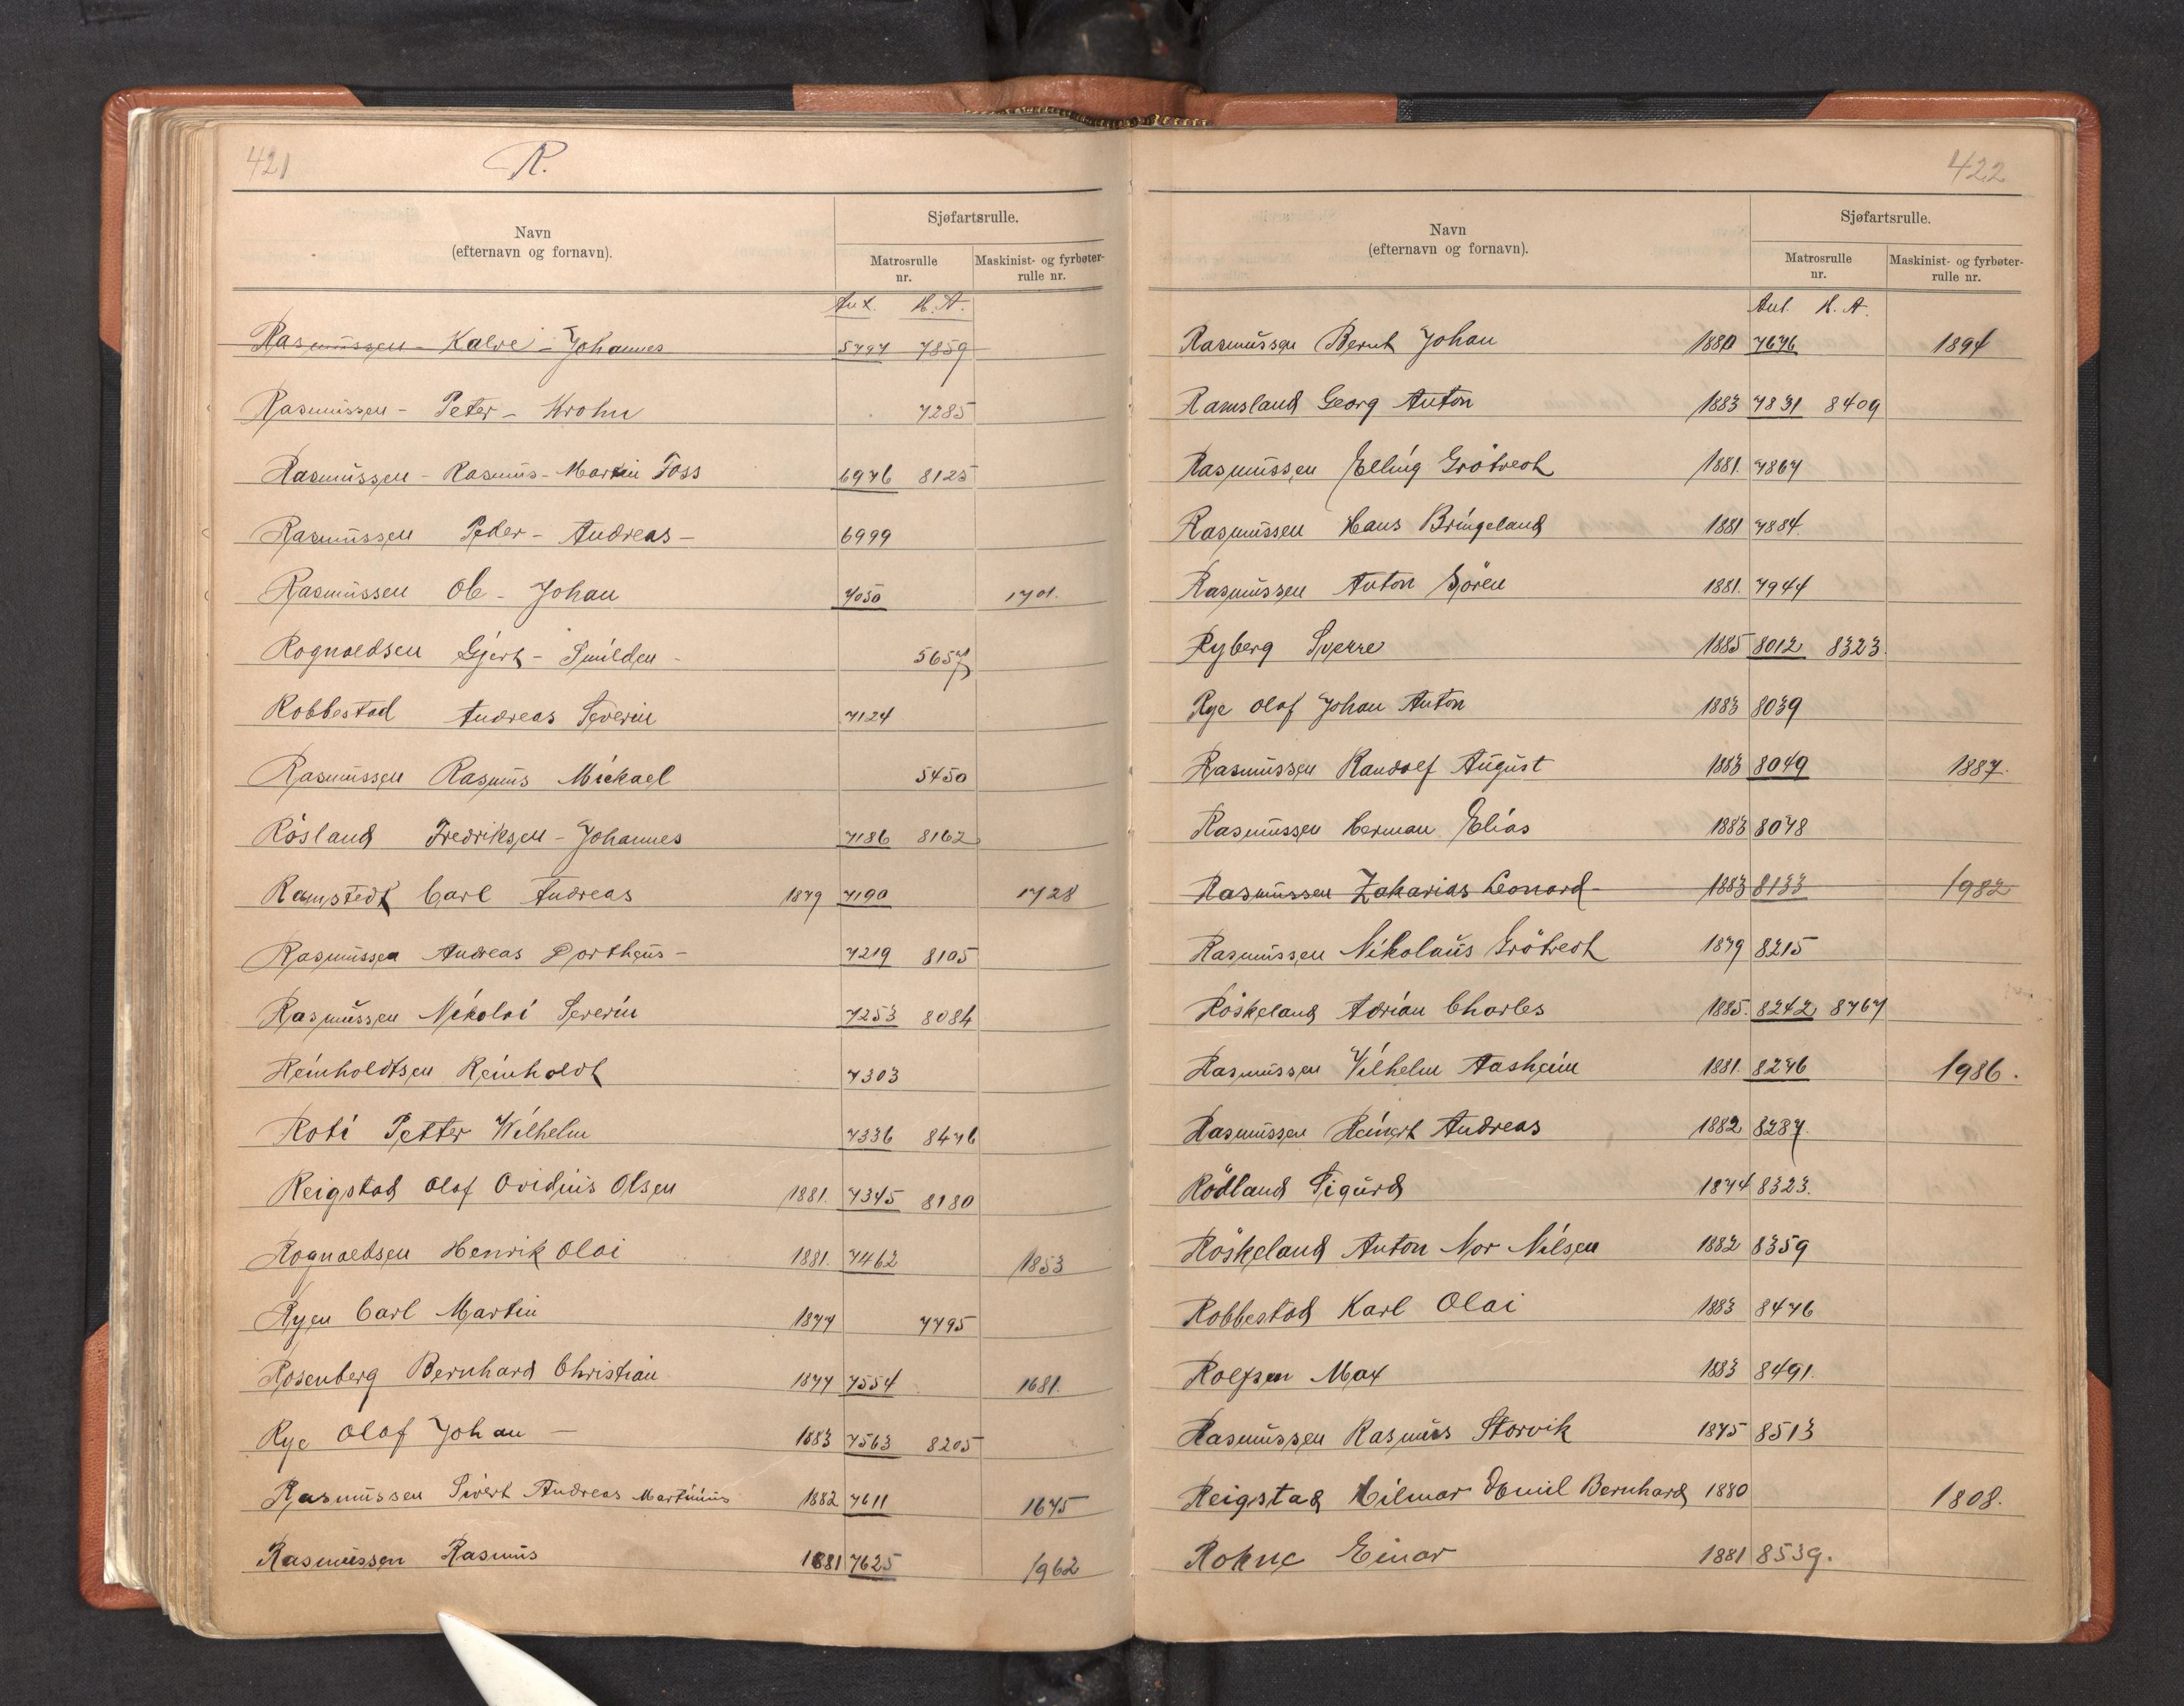 421
R.
Navn
(efternavn og fornavn).
Sjøfartsrulle.
Matrosrulle
nr.
Maskinist- og fyrbøter-
rulle nr.
H. A.
Rasmussen - Kalve - Johannes 5797 7859
Rasmussen - Peter - Krohn 7285
Rasmussen - Rasmus - Martin Foss 6976 8125
Rasmussen Peder - Andreas - 6999
Rasmussen Ole - Johan 7050 1701.
Rognaldsen Gjert - Smilden - 5657
Robbestad Andreas Severin 7124
Rasmussen Rasmus Mickael 5450
Rösland Fredriksen - Johannes 7186 8162
Ramstedt Carl Andreas 1879 7190 1728
Rasmussen Andreas Dortheus - 7219 8105
Rasmussen Nikolai Severin 7253 8084
Reinholdtsen Reinholdt 7303
Roti Petter Wilhelm 7336 8476
Reigstad Olaf Ovidius Olsen 1881. 7345 8180
Rognaldsen Henrik Olai 1881. 7462 1853
Ryen Carl Martin 1877 7795
Rosenberg Bernhard Christian 1877 7554 1681.
Rye Olaf Johan — 1883 7563 8205
Rasmussen Sivert Andreas Martinius 1882 7611 1675
Rasmussen Rasmus 1881 7625 1962
422
Navn
(efternavn og fornavn).
Sjøfartsrulle.
Matrosrulle
nr.
Maskinist- og fyrbøter-
rulle nr.
H. A.
Rasmussen Bernt Johan 1880 7676 1894
Ramsland Georg Anton 1883 7831 8409
Rasmussen Elling Grötvedt 1881. 7867
Rasmussen Hans Bringeland 1881 7884.
Rasmussen Anton Sören 1881. 7944
Ryberg Sverre 1885 8012 8323.
Rye Olaf Johan Anton 1883 8039
Rasmussen Randolf August 1883 8049 1887.
Rasmussen Herman Elias 1883 8078
Rasmussen Zakarias Leonard 1883 8133 1982
Rasmussen Nikolaus Grötvedt 1879 8215
Röskeland Adrian Charles 1885. 8242 8767
Rasmussen Vilhelm Aasheim 1881. 8276 1986.
Rasmussen Reinert Andreas 1882 8287.
Rödland Sigurd 1874 8323.
Röskeland Anton Mor Nilsen 1882 8359
Robbestad Karl Olai 1883 8476
Rolfsen Max 1883 8491.
Rasmussen Rasmus Storvik 1875 8513
Reigstad Hilmar Emil Bernhard 1880 1808.
Rokne Einar 1881 8539.